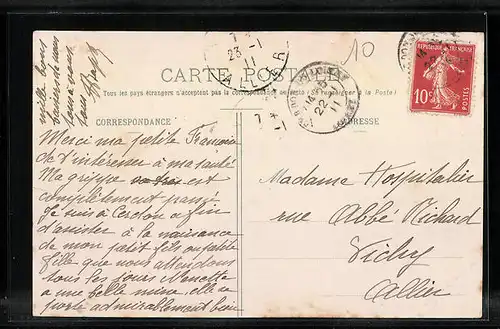 10
7 *
23 - 1
11
ALLIER
CARTE POSTALE
Tous les pays étrangers n'acceptent pas la correspondance au recto (Se renseigner à la Poste)
CORRESPONDANCE
ADRESSE
14
22
11
RÉPUBLIQUE FRANÇAISE
10c
POSTES
mille bons
baisers de nous
tous
Merci ma petite Françoise
de t'intéresser à ma santé
Ma grippe est
complètement passé.
Je suis à afin
d'assister à la naissance
de mon petit fils ou petite
fille que nous attendons
tous les jours
a une belle mine elle se
porte admirablement bien
Madame Hospitalier
rue Abbé Richard
Vichy
Allier